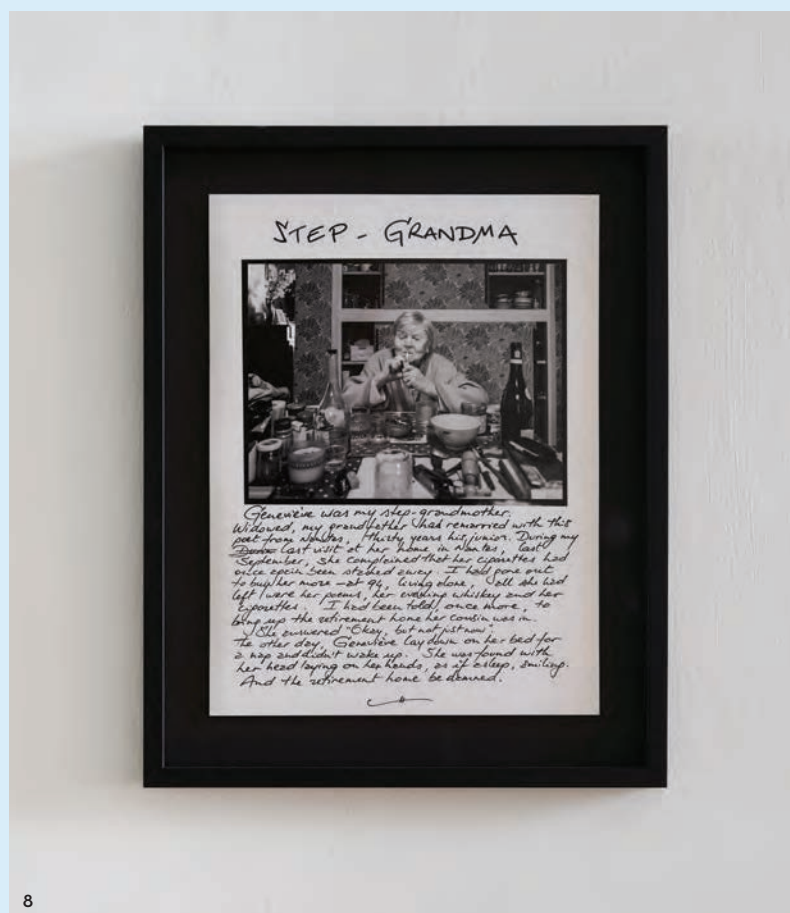 STEP - GRANDMA
Geneviève was my step-grandmother.
Widowed, my grandfather had remarried with this
poet from Nantes, thirty years his junior. During my
last visit at her home in Nantes, last
September, she complained that her cigarettes had
once again been stashed away. I had gone out
to buy her more – at 94, living alone, all she had
left were her poems, her evening whiskey and her
cigarettes. I had been told, once more, to
bring up the retirement home her cousin was in.
She answered "Okay, but not just now".
The other day, Geneviève lay down on her bed for
a nap and didn't wake up. She was found with
her head laying on her hands, as if asleep, smiling.
And the retirement home be damned.
8